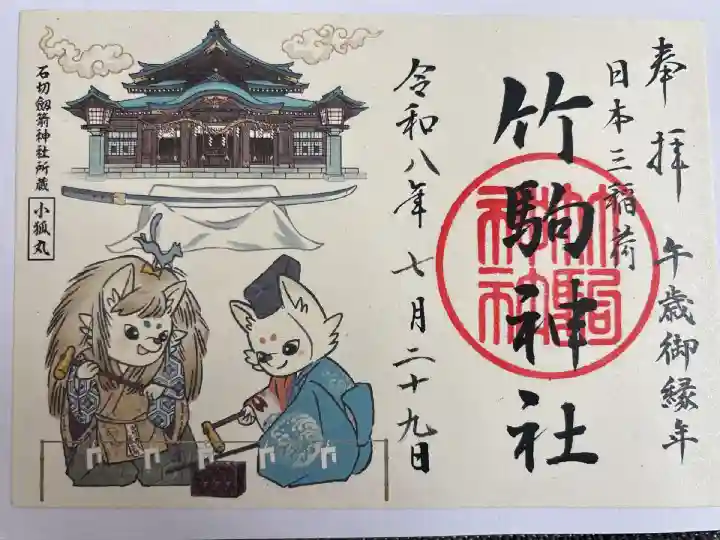 奉拝
午歳御縁年
日本三稲荷
竹駒神社
令和八年七月二十九日
石切劔箭神社所蔵
小狐丸